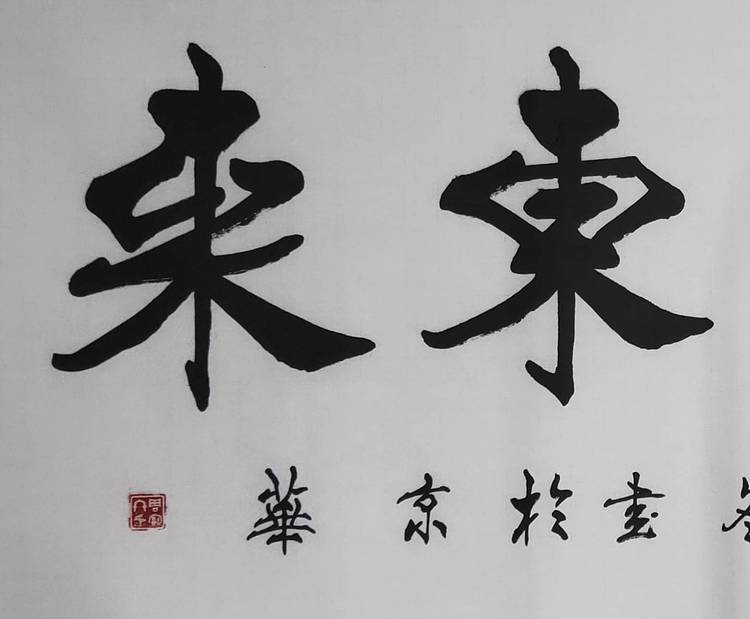 東来
書於京華